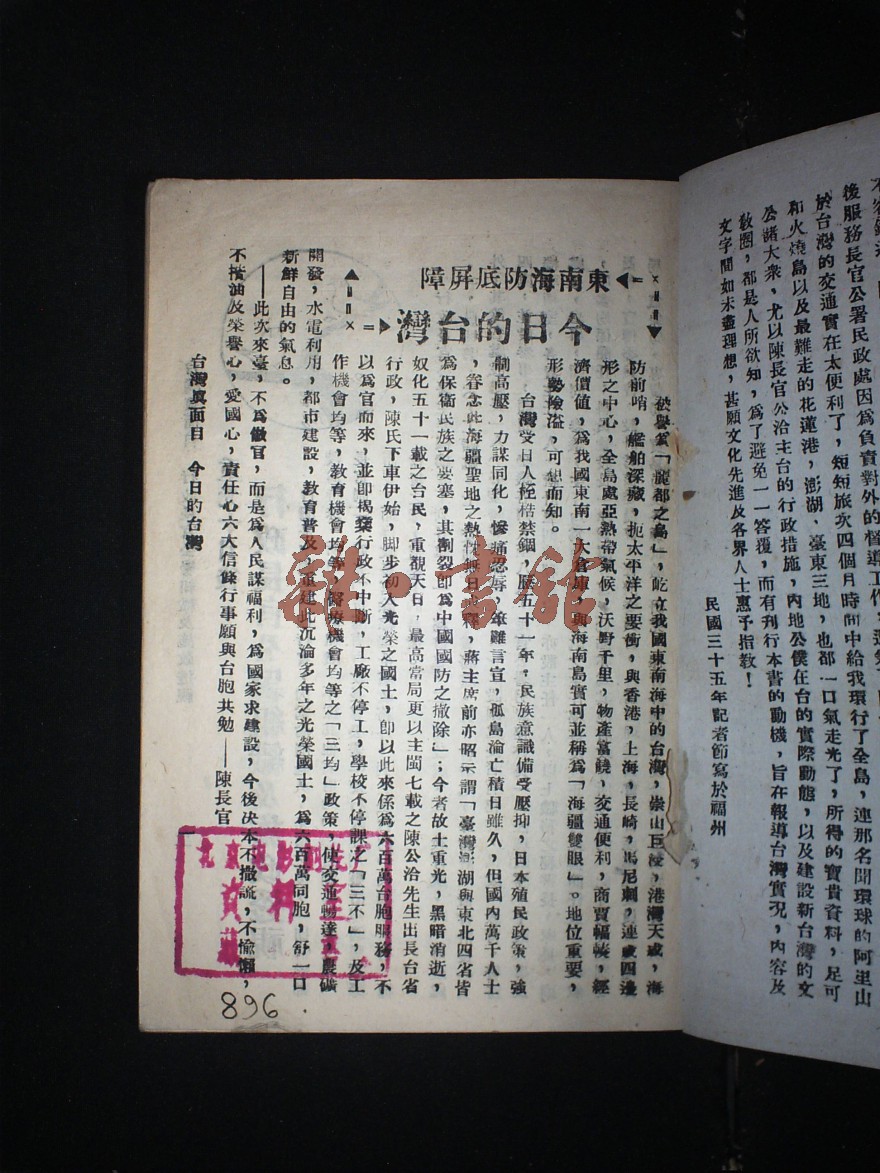 不容錯過
後服務長官公署民政處因為負責對外的督導工作
於台灣的交通實在太便利了,短短旅次四個月時間中給我環行了全島,連那名聞環球的阿里山
和火燒島以及最難走的花蓮港,澎湖,臺東三地,也都一口氣走光了,所得的寶貴資料,足可
公諸大衆,尤以陳長官公洽主台的行政措施,內地公僕在台的實際動態,以及建設新台灣的文
敎圈,都是人所欲知,爲了避免一一答覆,而有刊行本書的動機,旨在報導台灣實況,內容及
文字間如未盡理想,甚願文化先進及各界人士惠予指敎!
民國三十五年記者節寫於福州
東南海防底屏障
今日的台灣
被譽爲「麗都之島」,屹立我國東南海中的台灣,崇山巨浸,港灣天成,海
防前哨,艦舶深藏,扼太平洋之要衝,與香港,上海,長崎,馬尼剌,連成四邊
形之中心,全島處亞熱帶氣候,沃野千里,物產富饒,交通便利,商賈輻輳,經
濟價値,爲我國東南一大倉庫,與海南島實可並稱爲「海疆雙眼」。地位重要,
形勢險溢,可想而知。
台灣受日人桎梏禁錮,歷五十一年,民族意識備受壓抑,日本殖民政策,強
制高壓,力謀同化,慘痛忍辱,筆難言宣,孤島淪亡積日雖久,但國內萬千人士
,眷念此海疆聖地之熱忱無日或釋,蔣主席前亦昭示謂「臺灣澎湖與東北四省皆
爲保衛民族之要塞,其割裂卽爲中國國防之撤除」;今者故土重光,黑暗消逝,
奴化五十一載之台民,重覩天日,最高當局更以主閩七載之陳公洽先生出長台省
行政,陳氏下車伊始,脚步初入光榮之國土,卽以此來係爲六百萬台胞服務,不
以爲官而來,並卽揭櫫行政不中斷,工廠不停工,學校不停課之「三不」,及工
作機會均等,敎育機會均等,醫療機會均等之「三均」政策,使交通暢達,農礦
開發,水電利用,都市建設,敎育普及,重建此沉淪多年之光榮國土,爲六百萬同胞,舒一口
新鮮自由的氣息。
——此次來臺,不爲做官,而是爲人民謀福利,爲國家求建設,今後決本不撒謊,不偷懶,
不揩油及榮譽心,愛國心,責任心六大信條行事願與台胞共勉——陳長官
台灣眞面目 今日的台灣
一
資料室
藏
896
雜·書館